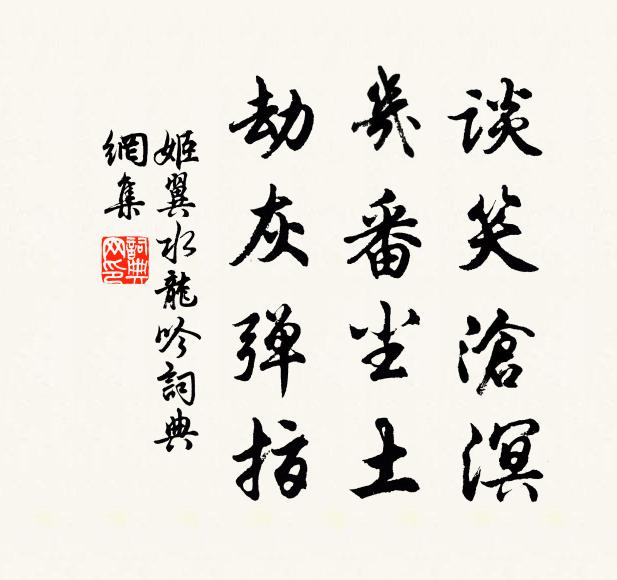 谈笑滄溟
幾番尘土
劫灰弹指
姬翼水龍吟詞典
網集
詞典网印